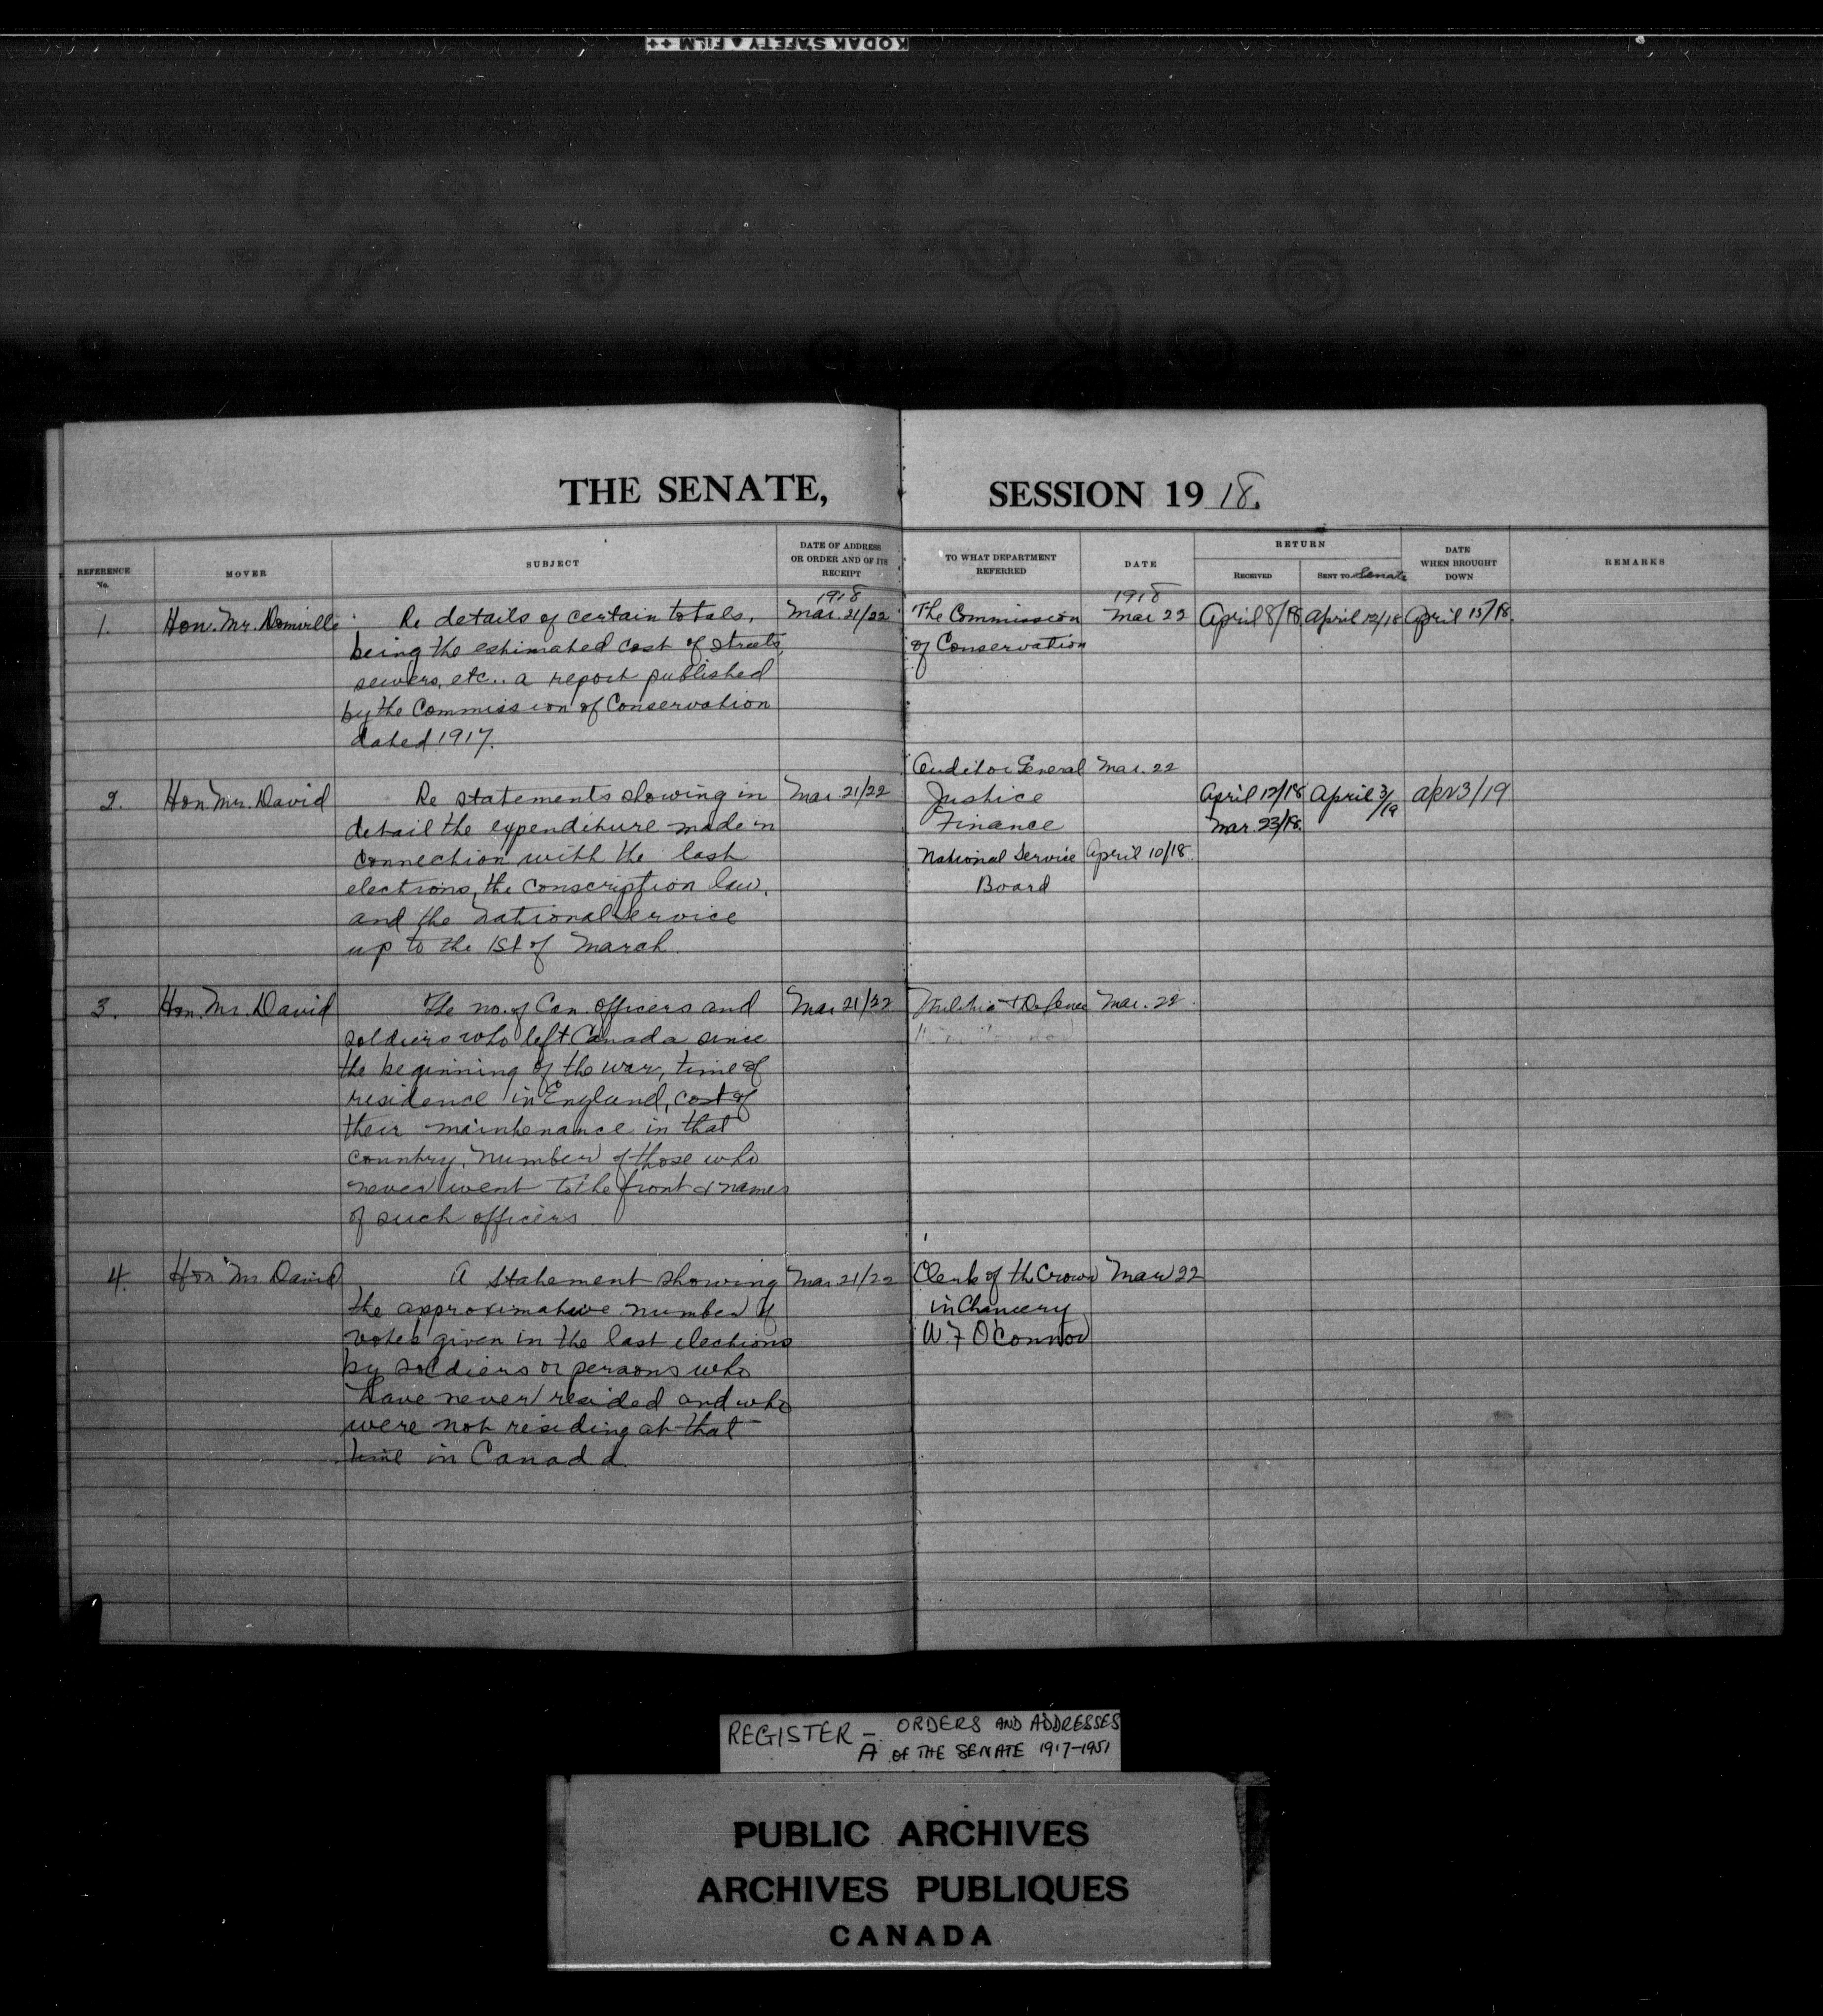 KODAK SAFETY FILM ++
THE SENATE, SESSION 1918.
REFERENCE No.
MOVER
SUBJECT
DATE OF ADDRESS OR ORDER AND OF ITS RECEIPT
TO WHAT DEPARTMENT REFERRED
DATE
RETURN
RECEIVED
SENT TO Senate
DATE WHEN BROUGHT DOWN
REMARKS
1918
1918
1. Hon. Mr. Domville Re details of certain totals, Mar. 21/22 The Commission Mar 22 April 8/18 April 12/18 April 15/18.
being the estimated cost of streets, of Conservation
sewers, etc.. a report published
by the Commission of Conservation
dated 1917.
Auditor General Mar. 22
2. Hon. Mr. David Re statements showing in Mar. 21/22 Justice April 12/18 April 3/19 Apr 3/19
detail the expenditure made in Finance Mar. 23/18.
connection with the last National Service April 10/18.
elections, the conscription law, Board
and the National Service
up to the 1st of March.
3. Hon. Mr. David The no. of Can. officers and Mar 21/22 Militia & Defence Mar. 22.
soldiers who left Canada since
the beginning of the war, time of
residence in England, cost of
their maintenance in that
country, number of those who
never went to the front & names
of such officers.
4. Hon Mr David A statement showing Mar. 21/22 Clerk of the Crown Mar 22
the approximative number of in Chancery
votes given in the last elections W. F O'Connor
by soldiers or persons who
have never resided and who
were not residing at that
time in Canada
REGISTER - ORDERS AND ADDRESSES
A OF THE SENATE 1917-1951
PUBLIC ARCHIVES
ARCHIVES PUBLIQUES
CANADA